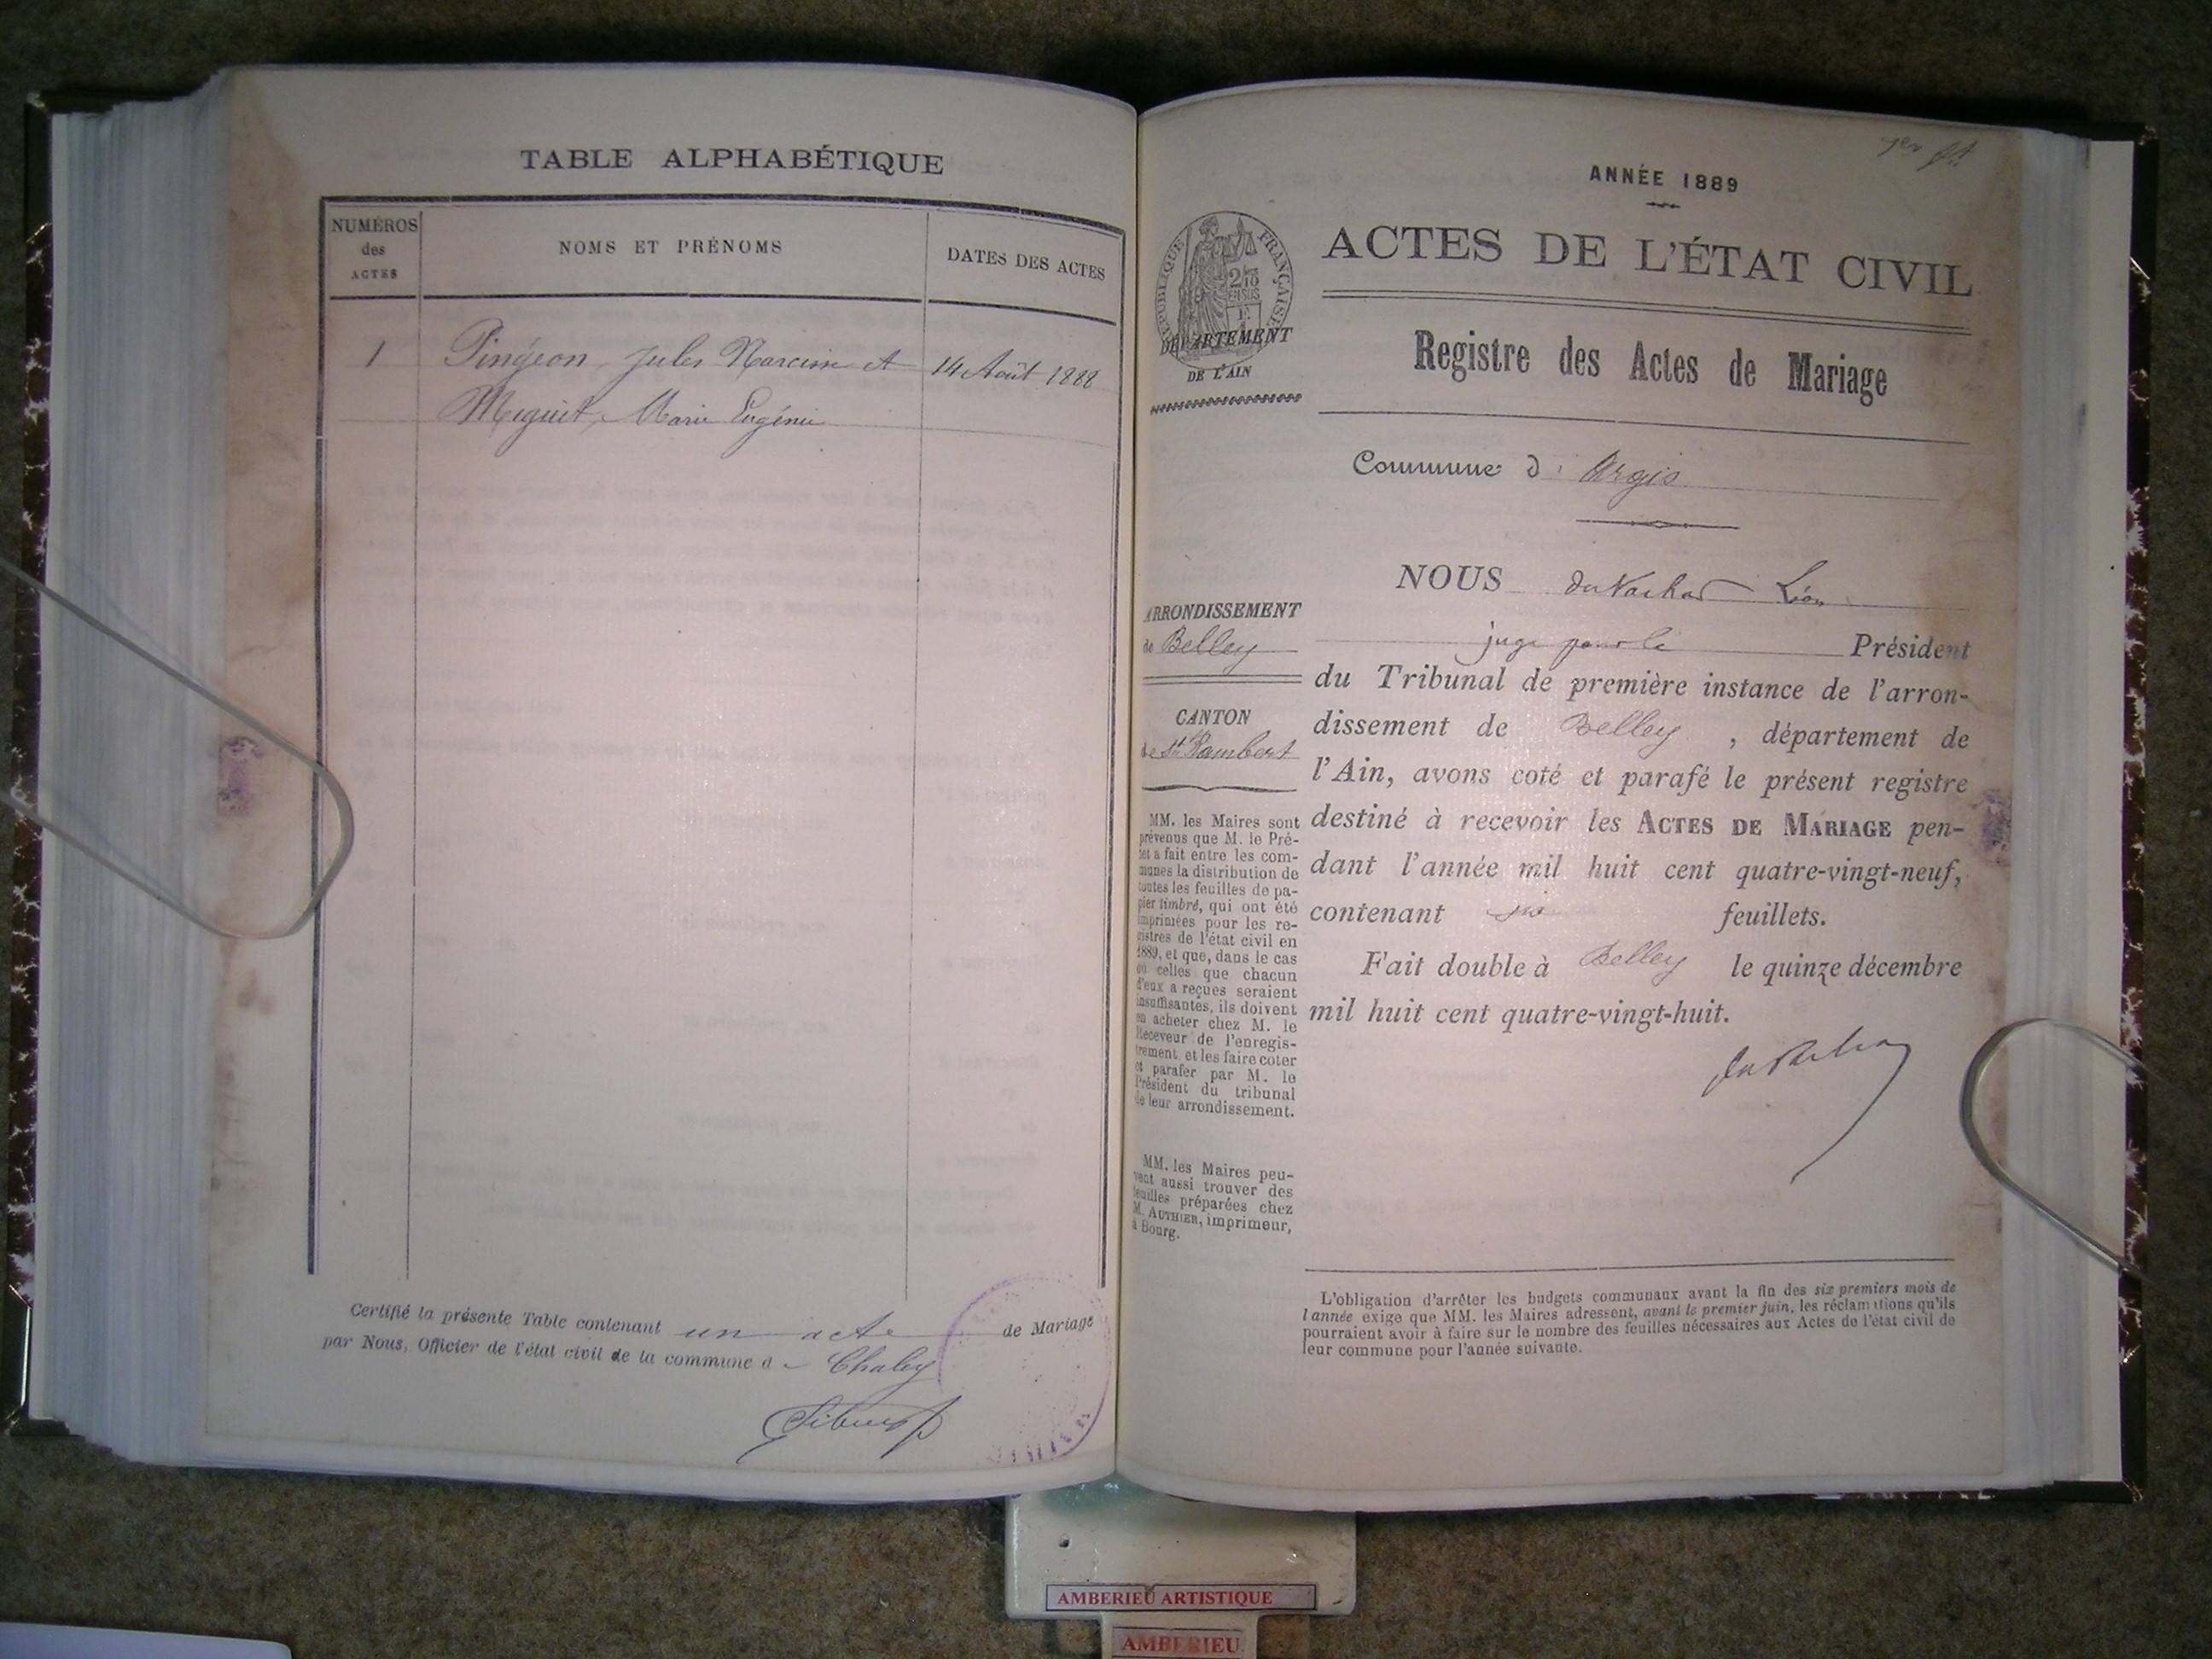 TABLE ALPHABÉTIQUE
NUMÉROS
des
ACTES
NOMS ET PRÉNOMS
DATES DES ACTES
1
Pingeon, Jules Narcisse et
14 Août 1888
Miguet, Marie Eugénie
Certifié la présente Table contenant un acte de Mariage
par Nous, Officier de l'état civil de la commune d Chaley
ANNÉE 1889
ACTES DE L'ÉTAT CIVIL
RÉPUBLIQUE FRANÇAISE
DÉPARTEMENT
DE L'AIN
Registre des Actes de Mariage
Commune d' Argis
NOUS Léon
juge pour le Président
du Tribunal de première instance de l'arron-
dissement de Belley, département de
l'Ain, avons coté et parafé le présent registre
destiné à recevoir les ACTES DE MARIAGE pen-
dant l'année mil huit cent quatre-vingt-neuf,
contenant six feuillets.
Fait double à Belley le quinze décembre
mil huit cent quatre-vingt-huit.
ARRONDISSEMENT
de Belley
CANTON
de St Rambert
MM. les Maires sont
prévenus que M. le Pré-
fet a fait entre les com-
munes la distribution de
toutes les feuilles de pa-
pier timbré, qui ont été
imprimées pour les re-
gistres de l'état civil en
1889, et que, dans le cas
où celles que chacun
d'eux a reçues seraient
insuffisantes, ils doivent
en acheter chez M. le
Receveur de l'enregis-
trement et les faire coter
et parafer par M. le
Président du tribunal
de leur arrondissement.
MM. les Maires peu-
vent aussi trouver des
feuilles préparées chez
M. AUTHIER, imprimeur,
à Bourg.
L'obligation d'arrêter les budgets communaux avant la fin des six premiers mois de
l'année exige que MM. les Maires adressent, avant le premier juin, les réclamations qu'ils
pourraient avoir à faire sur le nombre des feuilles nécessaires aux Actes de l'état civil de
leur commune pour l'année suivante.
AMBERIEU ARTISTIQUE
AMBERIEU